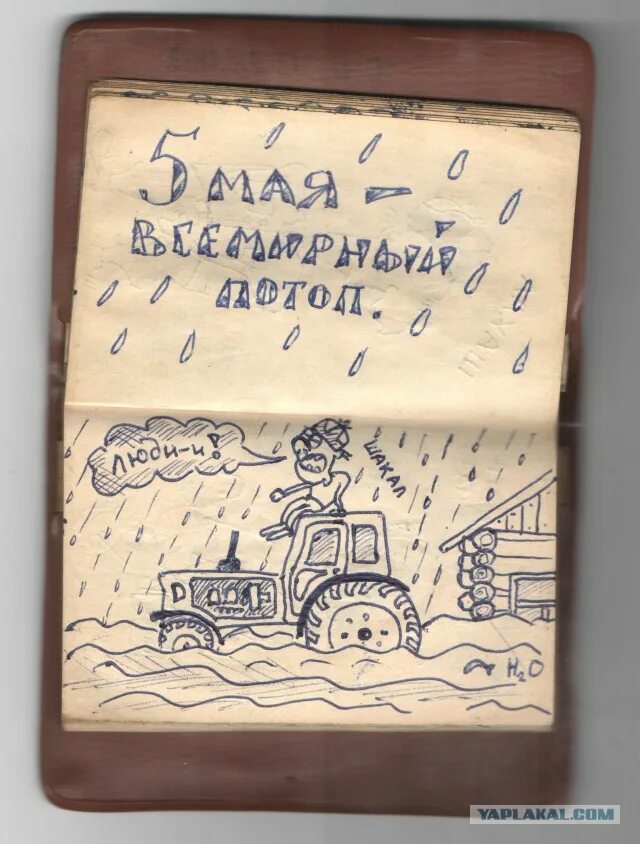 5 МАЯ —
ВСЕМИРНЫЙ
ПОТОП.
ЛЮДИ-И!
ШАКАЛ
H₂O
YAPLAKAL.COM